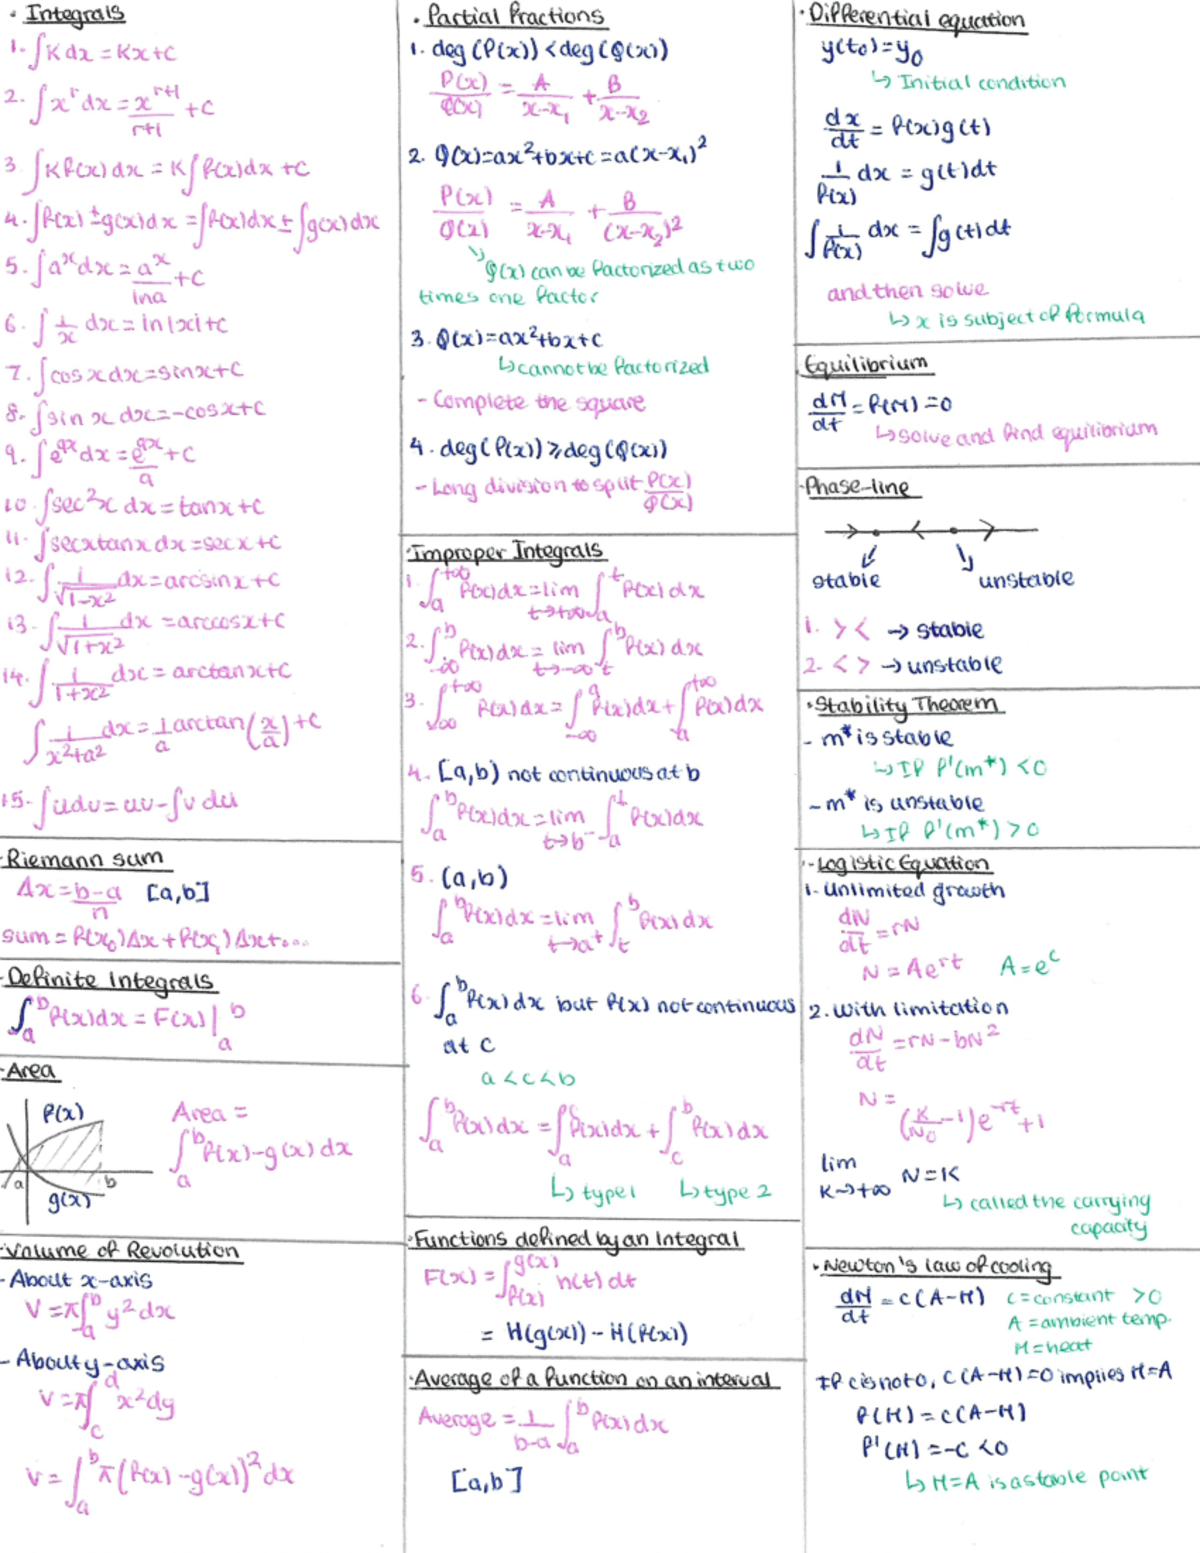 · Integrals
1. ∫K dx = Kx+C
2. ∫x^r dx = x^(r+1)/(r+1) + C
3. ∫Kf(x) dx = K∫f(x)dx + C
4. ∫f(x) ± g(x) dx = ∫f(x)dx ± ∫g(x)dx
5. ∫a^x dx = a^x/ln a + C
6. ∫ 1/x dx = ln|x|+C
7. ∫cos x dx = sin x + C
8. ∫sin x dx = -cos x + C
9. ∫e^(ax) dx = e^(ax)/a + C
10. ∫sec²x dx = tan x + C
11. ∫sec x tan x dx = sec x + C
12. ∫ 1/√(1-x²) dx = arcsin x + C
13. ∫ 1/√(1+x²) dx = arccos x + C
14. ∫ 1/(1+x²) dx = arctan x + C
∫ 1/(x²+a²) dx = 1/a arctan(x/a) + C
15. ∫u dv = uv - ∫v du
· Riemann sum
Δx = (b-a)/n [a,b]
sum = f(x₀)Δx + f(x₁)Δx + ...
· Definite Integrals
∫_a^b f(x)dx = F(x)|_a^b
· Area
f(x)
a
b
g(x)
Area =
∫_a^b f(x) - g(x) dx
· Volume of Revolution
- About x-axis
V = π∫_a^b y² dx
- About y-axis
V = π∫_c^d x² dy
V = ∫_a^b π(f(x) - g(x))² dx
· Partial Fractions
1. deg(P(x)) < deg(Q(x))
P(x)/Q(x) = A/(x-x₁) + B/(x-x₂)
2. Q(x) = ax²+bx+c = a(x-x₁)²
P(x)/Q(x) = A/(x-x₁) + B/(x-x₂)²
↳ Q(x) can be factorized as two
times one factor
3. Q(x) = ax²+bx+c
↳ cannot be factorized
- Complete the square
4. deg(P(x)) ⩾ deg(Q(x))
- Long division to split P(x)/Q(x)
· Improper Integrals
1. ∫_a^(+∞) f(x)dx = lim_(t→+∞) ∫_a^t f(x)dx
2. ∫_(-∞)^b f(x)dx = lim_(t→-∞) ∫_t^b f(x)dx
3. ∫_(-∞)^(+∞) f(x)dx = ∫_(-∞)^a f(x)dx + ∫_a^(+∞) f(x)dx
4. [a,b) not continuous at b
∫_a^b f(x)dx = lim_(t→b⁻) ∫_a^t f(x)dx
5. (a,b)
∫_a^b f(x)dx = lim_(t→a⁺) ∫_t^b f(x)dx
6. ∫_a^b f(x)dx but f(x) not continuous
at c
a < c < b
∫_a^b f(x)dx = ∫_a^c f(x)dx + ∫_c^b f(x)dx
↳ type 1 ↳ type 2
· Functions defined by an Integral
F(x) = ∫_(f(x))^(g(x)) h(t) dt
= H(g(x)) - H(f(x))
· Average of a function on an interval
Average = 1/(b-a) ∫_a^b f(x)dx
[a,b]
· Differential equation
y(t₀) = y₀
↳ Initial condition
dx/dt = f(x)g(t)
1/f(x) dx = g(t)dt
∫ 1/f(x) dx = ∫g(t)dt
and then solve
↳ x is subject of formula
Equilibrium
dM/dt = f(M) = 0
↳ solve and find equilibrium
· Phase-line
stable
unstable
1. > < → stable
2. < > → unstable
· Stability Theorem
- m* is stable
↳ If f'(m*) < 0
- m* is unstable
↳ If f'(m*) > 0
· Logistic Equation
1. Unlimited growth
dN/dt = rN
N = Ae^(rt) A = e^c
2. With limitation
dN/dt = rN - bN²
N = (K/N₀ - 1)e^(-rt) + 1
lim_(K→+∞) N = K
↳ called the carrying
capacity
· Newton's law of cooling
dH/dt = c(A-H) C = constant > 0
A = ambient temp.
H = heat
If c is not 0, c(A-H) = 0 implies H=A
f(H) = c(A-H)
f'(H) = -c < 0
↳ H=A is a stable point